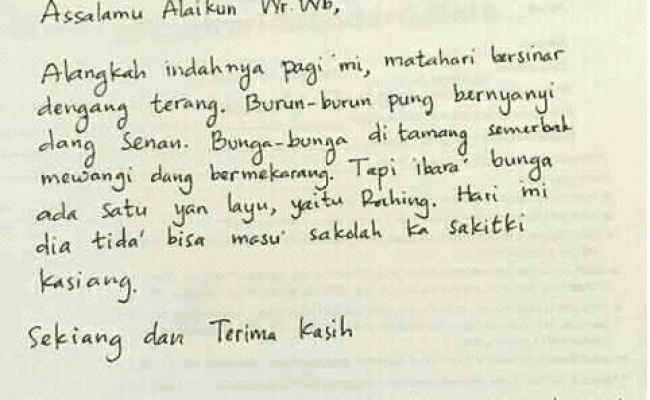 Assalamu Alaikun Wr. Wb,
Alangkah indahnya pagi mi, matahari bersinar
dengang terang. Burun-burun pung bernyanyi
dang Senan. Bunga-bunga di tamang semerbak
mewangi dang bermekarang. Tapi ibara' bunga
ada satu yan layu, yaitu Raching. Hari mi
dia tida' bisa masu' sakolah ka sakitki
kasiang.
Sekiang dan Terima Kasih